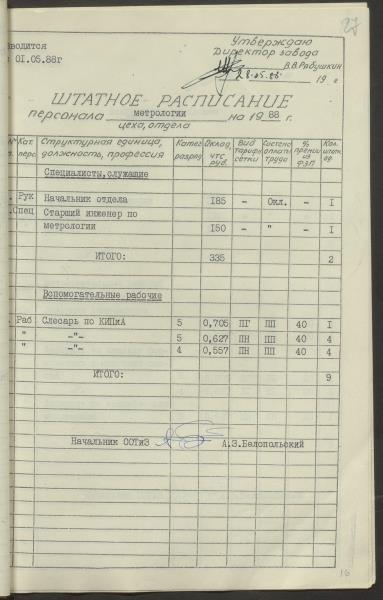 27
Утверждаю
Директор завода
В.В.Рябушкин
28.05.88 19 г
водится
01.05.88г
ШТАТНОЕ РАСПИСАНИЕ
персонала метрологии на 1988 г.
цеха, отдела
Кат. перс Структурная единица, должность, профессия Катег разряд Оклад, ЧТС руб. Вид тарифн сетки Система оплаты труда % премии из ФЗП Кол. штат. ед.
Специалисты,служащие
Рук Начальник отдела 185 - Окл. - I
Спец Старший инженер по
метрологии 150 - " - I
ИТОГО: 335 2
Вспомогательные рабочие
Раб Слесарь по КИПиА 5 0,705 ПГ ПП 40 I
" -"- 5 0,627 ПН ПП 40 4
" -"- 4 0,557 ПН ПП 40 4
ИТОГО: 9
Начальник ООТиЗ А.З.Белопольский
16